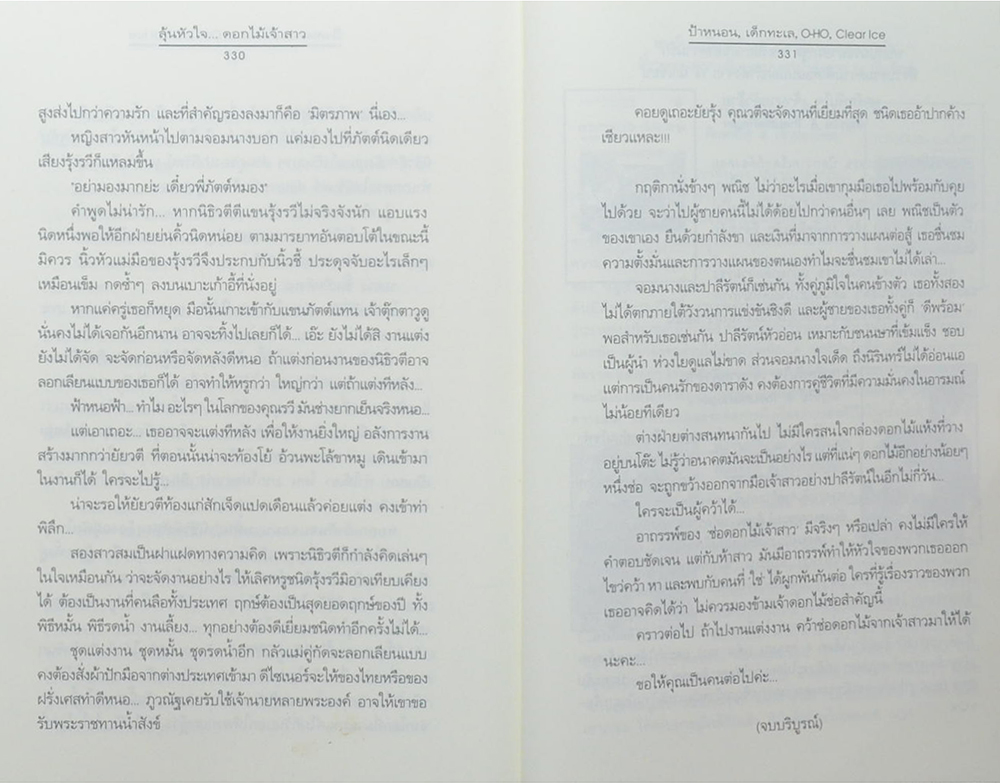 ลุ้นหัวใจ... ดอกไม้เจ้าสาว
330
สูงส่งไปกว่าความรัก และที่สำคัญรองลงมาก็คือ 'มิตรภาพ' นี่เอง...
หญิงสาวหันหน้าไปตามจอมนางบอก แค่มองไปที่ภัตต์นิดเดียว
เสียงรุ้งรวีก็แหลมขึ้น
"อย่ามองมากย่ะ เดี๋ยวพี่ภัตต์หมอง"
คำพูดไม่น่ารัก... หากนิธิวตีตีแขนรุ้งรวีไม่จริงจังนัก แอบแรง
นิดหนึ่งพอให้อีกฝ่ายย่นคิ้วนิดหน่อย ตามมารยาทอันตอบโต้ในขณะนี้
มิควร นิ้วหัวแม่มือของรุ้งรวีจึงประกบกับนิ้วชี้ ประดุจจับอะไรเล็กๆ
เหมือนเข็ม กดซ้ำๆ ลงบนเบาะเก้าอี้ที่นั่งอยู่
หากแค่ครู่เธอก็หยุด มือนั้นเกาะเข้ากับแขนภัตต์แทน เจ้าตุ๊กตาวูดู
นั่นคงไม่ได้เจอกันอีกนาน อาจจะทิ้งไปเลยก็ได้... เอ๊ะ ยังไม่ได้สิ งานแต่ง
ยังไม่ได้จัด จะจัดก่อนหรือจัดหลังดีหนอ ถ้าแต่งก่อนงานของนิธิวตีอาจ
ลอกเลียนแบบของเธอก็ได้ อาจทำให้หรูกว่า ใหญ่กว่า แต่ถ้าแต่งทีหลัง...
ฟ้าหนอฟ้า... ทำไม อะไรๆ ในโลกของคุณรวี มันช่างยากเย็นจริงหนอ...
แต่เอาเถอะ... เธออาจจะแต่งทีหลัง เพื่อให้งานยิ่งใหญ่ อลังการงาน
สร้างมากกว่ายัยวตี ที่ตอนนั้นน่าจะท้องโย้ อ้วนพะโล้ขาหมู เดินเข้ามา
ในงานก็ได้ ใครจะไปรู้...
น่าจะรอให้ยัยวตีท้องแก่สักเจ็ดแปดเดือนแล้วค่อยแต่ง คงเข้าท่า
พิลึก...
สองสาวสมเป็นฝาแฝดทางความคิด เพราะนิธิวตีก็กำลังคิดเล่นๆ
ในใจเหมือนกัน ว่าจะจัดงานอย่างไร ให้เลิศหรูชนิดรุ้งรวีมิอาจเทียบเคียง
ได้ ต้องเป็นงานที่คนลือทั้งประเทศ ฤกษ์ต้องเป็นสุดยอดฤกษ์ของปี ทั้ง
พิธีหมั้น พิธีรดน้ำ งานเลี้ยง... ทุกอย่างต้องดีเยี่ยมชนิดทำอีกครั้งไม่ได้...
ชุดแต่งงาน ชุดหมั้น ชุดรดน้ำอีก กลัวแม่คู่กัดจะลอกเลียนแบบ
คงต้องสั่งผ้าปักมือจากต่างประเทศเข้ามา ดีไซเนอร์จะให้ของไทยหรือของ
ฝรั่งเศสทำดีหนอ... ภูวณัฐเคยรับใช้เจ้านายหลายพระองค์ อาจให้เขาขอ
รับพระราชทานน้ำสังข์
ป้าหนอน, เด็กทะเล, O-HO, Clear Ice
331
คอยดูเถอะยัยรุ้ง คุณวตีจะจัดงานที่เยี่ยมที่สุด ชนิดเธออ้าปากค้าง
เชียวแหละ!!!
กฤติกานั่งข้างๆ พณิช ไม่ว่าอะไรเมื่อเขากุมมือเธอไปพร้อมกับคุย
ไปด้วย จะว่าไปผู้ชายคนนี้ไม่ได้ด้อยไปกว่าคนอื่นๆ เลย พณิชเป็นตัว
ของเขาเอง ยืนด้วยกำลังขา และเงินที่มาจากการวางแผนต่อสู้ เธอชื่นชม
ความตั้งมั่นและการวางแผนของตนเองทำไมจะชื่นชมเขาไม่ได้เล่า...
จอมนางและปาลีรัตน์ก็เช่นกัน ทั้งคู่ภูมิใจในคนข้างตัว เธอทั้งสอง
ไม่ได้ตกภายใต้วังวนการแข่งขันชิงดี และผู้ชายของเธอทั้งคู่ก็ 'ดีพร้อม'
พอสำหรับเธอเช่นกัน ปาลีรัตน์หัวอ่อน เหมาะกับชนนษาที่เข้มแข็ง ชอบ
เป็นผู้นำ ห่วงใยดูแลไม่ขาด ส่วนจอมนางใจเด็ด ถึงนิรินทร์ไม่ได้อ่อนแอ
แต่การเป็นคนรักของดาราดัง คงต้องการคู่ชีวิตที่มีความมั่นคงในอารมณ์
ไม่น้อยทีเดียว
ต่างฝ่ายต่างสนทนากันไป ไม่มีใครสนใจกล่องดอกไม้แห้งที่วาง
อยู่บนโต๊ะ ไม่รู้ว่าอนาคตมันจะเป็นอย่างไร แต่ที่แน่ๆ ดอกไม้อีกอย่างน้อยๆ
หนึ่งช่อ จะถูกขว้างออกจากมือเจ้าสาวอย่างปาลีรัตน์ในอีกไม่กี่วัน...
ใครจะเป็นผู้คว้าได้...
อาถรรพ์ของ 'ช่อดอกไม้เจ้าสาว' มีจริงๆ หรือเปล่า คงไม่มีใครให้
คำตอบชัดเจน แต่กับห้าสาว มันมีอาถรรพ์ทำให้หัวใจของพวกเธอออก
ไขว่คว้า หา และพบกับคนที่ 'ใช่' ได้ผูกพันกันต่อ ใครที่รู้เรื่องราวของพวก
เธออาจคิดได้ว่า ไม่ควรมองข้ามเจ้าดอกไม้ช่อสำคัญนี้
คราวต่อไป ถ้าไปงานแต่งงาน คว้าช่อดอกไม้จากเจ้าสาวมาให้ได้
นะคะ...
ขอให้คุณเป็นคนต่อไปค่ะ...
(จบบริบูรณ์)